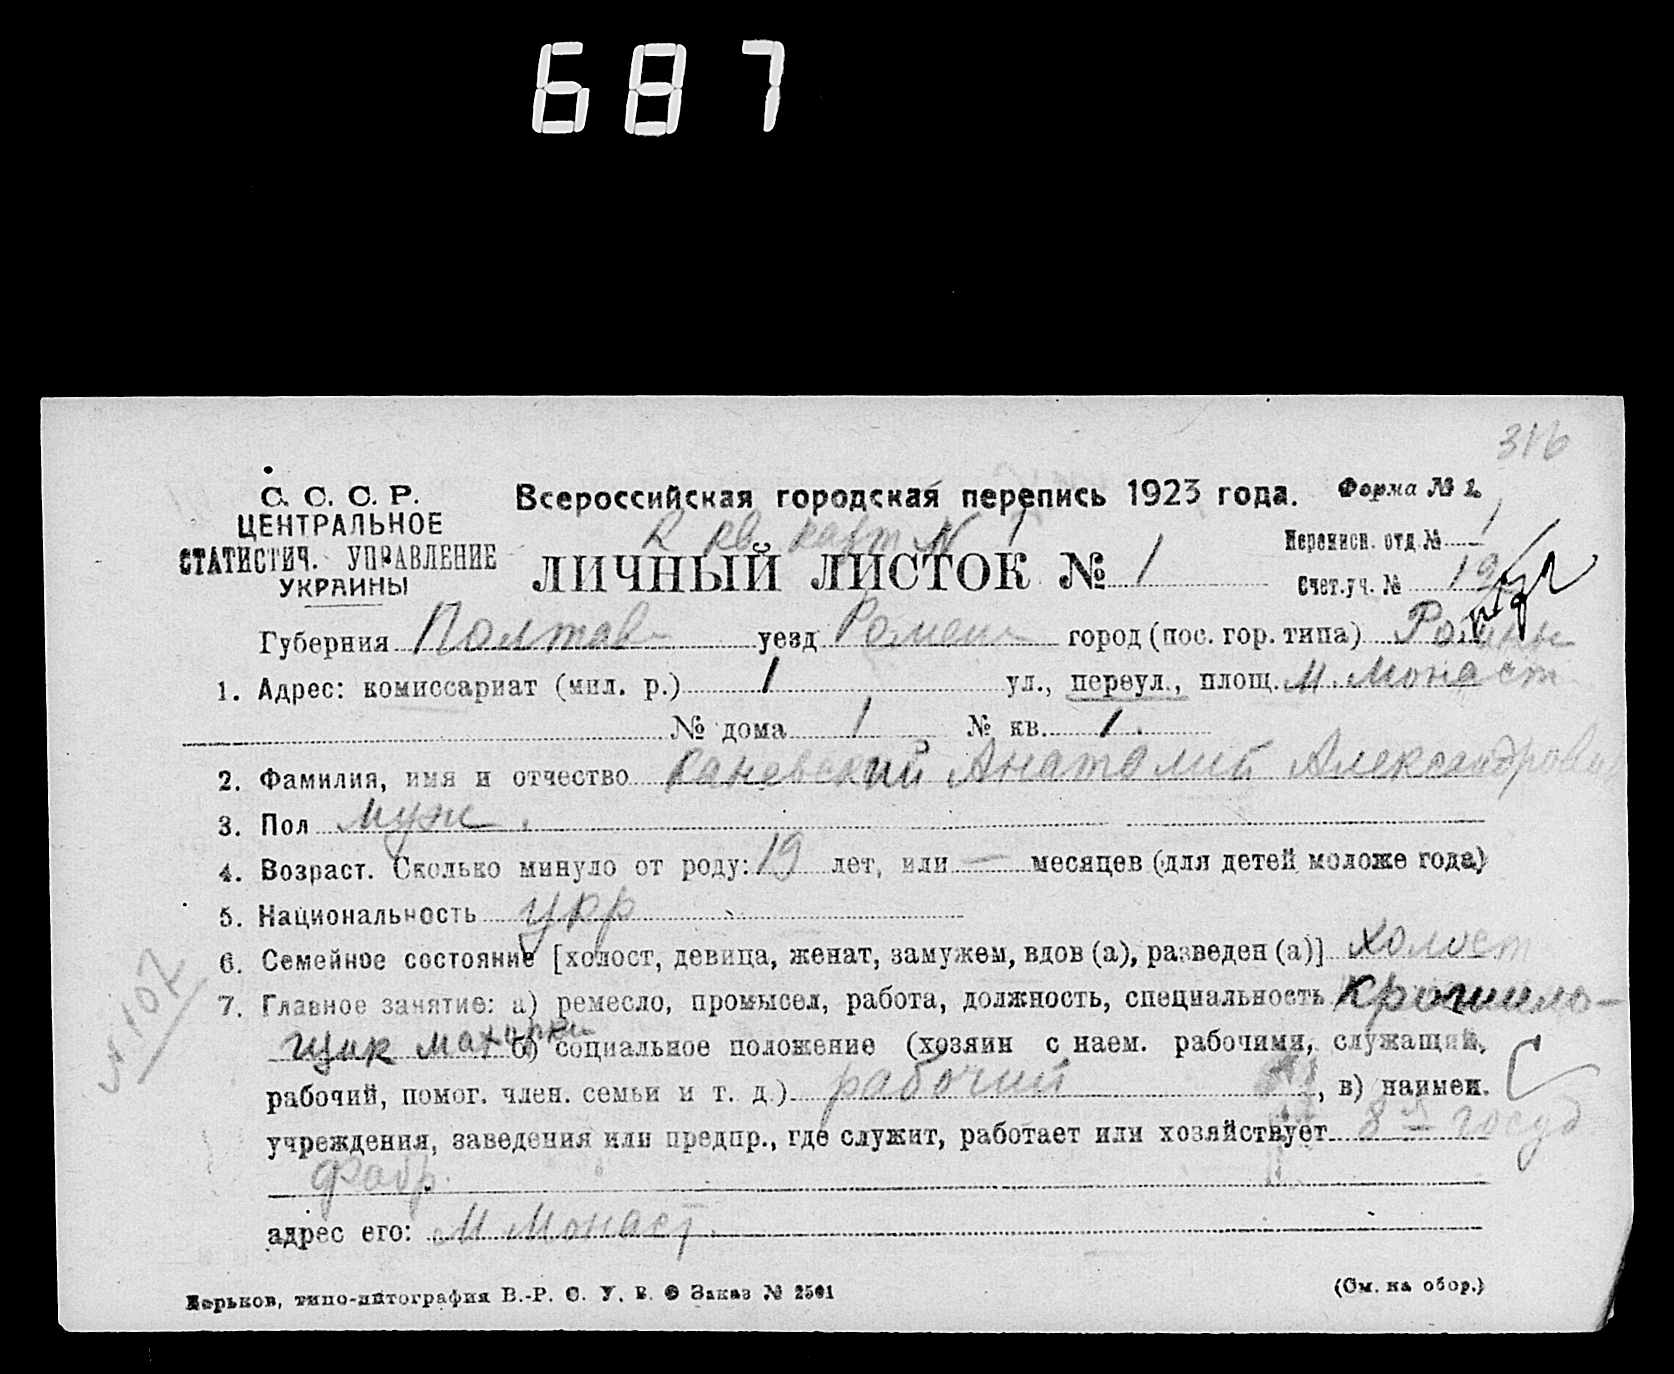 687
316
С. С. С. Р.
ЦЕНТРАЛЬНОЕ
СТАТИСТИЧ. УПРАВЛЕНИЕ
УКРАИНЫ
Всероссийская городская перепись 1923 года.
Форма № 1.
К кв карт № 1
ЛИЧНЫЙ ЛИСТОК № 1
Переписн. отд № 1
Счет.уч. № 19
Губерния Полтав уезд Ромен город (пос. гор. типа) Ромны
1. Адрес: комиссариат (мил. р.) 1 ул., переул., площ. М. Монаст
№ дома 1 № кв. 1.
2. Фамилия, имя и отчество Каневский Анатолий Александрович
3. Пол Муж.
4. Возраст. Сколько минуло от роду: 19 лет, или — месяцев (для детей моложе года)
5. Национальность укр
6. Семейное состояние [холост, девица, женат, замужем, вдов (а), разведен (а)] холост
№ 107
7. Главное занятие: а) ремесло, промысел, работа, должность, специальность Крошиль-
щик махорки б) социальное положение (хозяин с наем. рабочими, служащий,
рабочий, помог. член. семьи и т. д.) рабочий, в) наимен.
учреждения, заведения или предпр., где служит, работает или хозяйствует 8я госуд
Фабр.
адрес его: М Монаст.
Харьков, типо-литография В.-Р. С. У. В. О Заказ № 2501
(См. на обор.)